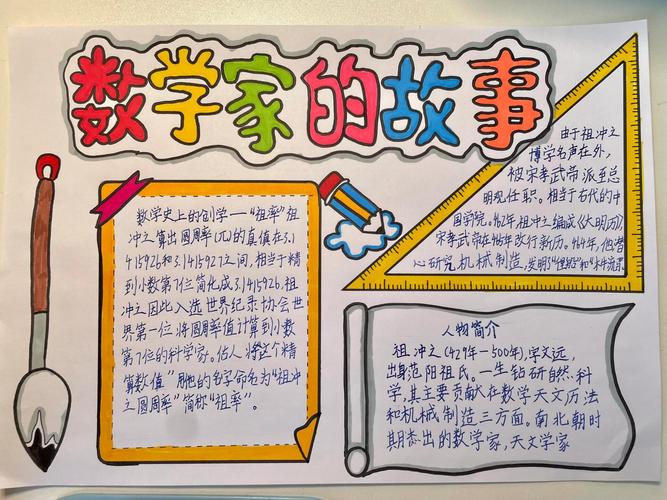 数学家的故事
数学史上的创学—“祖率”祖
冲之算出圆周率(兀)的真值在3.1
415926和3.1415927之间,相当于精
到小数第7位简化成3.1415926.祖
冲之因此入选世界纪录协会世
界第一位将圆周率值计算到小数
第7位的科学家。后人将这个精
算数值”用他的名字命名为“祖冲
之圆周率”简称“祖率”。
由于祖冲之
博学名声在外,
被宋孝武帝派至总
明观任职。相当于古代的中
国学院。462年,祖冲之编成《大明历》
宋孝武帝在465年改行新历。464年,他潜
心研究机械制造,发明了
人物简介
祖冲之(429年—500年),字文远,
出身范阳祖氏。一生钻研自然科
学,其主要贡献在数学天文历法
和机械制造三方面。南北朝时
期杰出的数学家,天文学家